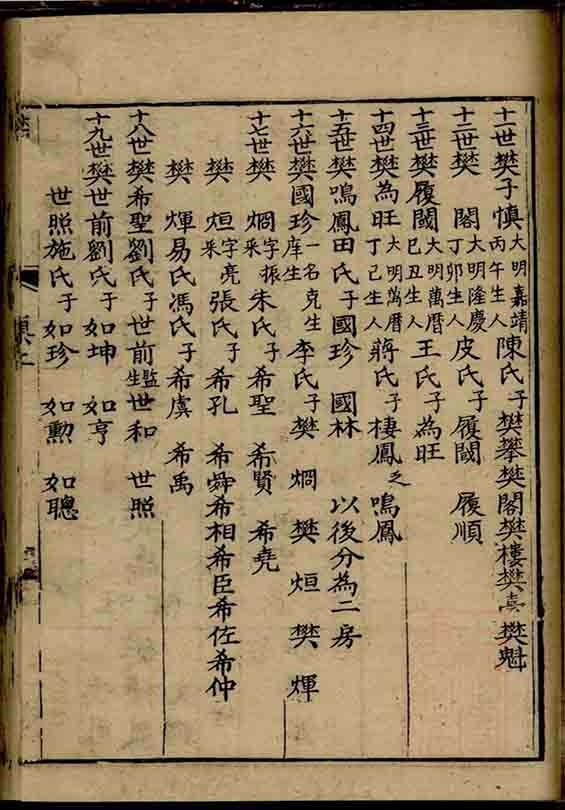 十一世樊子慎大明嘉靖丙午生人陳氏子樊攀樊閣樊樓樊臺樊魁
十二世樊閣大明隆慶丁卯生人皮氏子履闕履順
十三世樊履闕大明萬曆己丑生人王氏子為旺
十四世樊為旺大明萬曆丁己生人蔣氏子棲鳳之鳴鳳
十五世樊鳴鳳田氏子國珍國林以後分為二房
十六世樊國珍一名克生庠生李氏子樊烱樊烜樊煇
十七世樊烱字振采朱氏子希聖希賢希堯
樊烜字亮采張氏子希孔希舜希相希臣希佐希仲
樊煇易氏馮氏子希虞希禹
十八世樊希聖劉氏子世前監生世和世照
十九世樊世前劉氏子如坤如亨
世照施氏子如珍如勲如聰